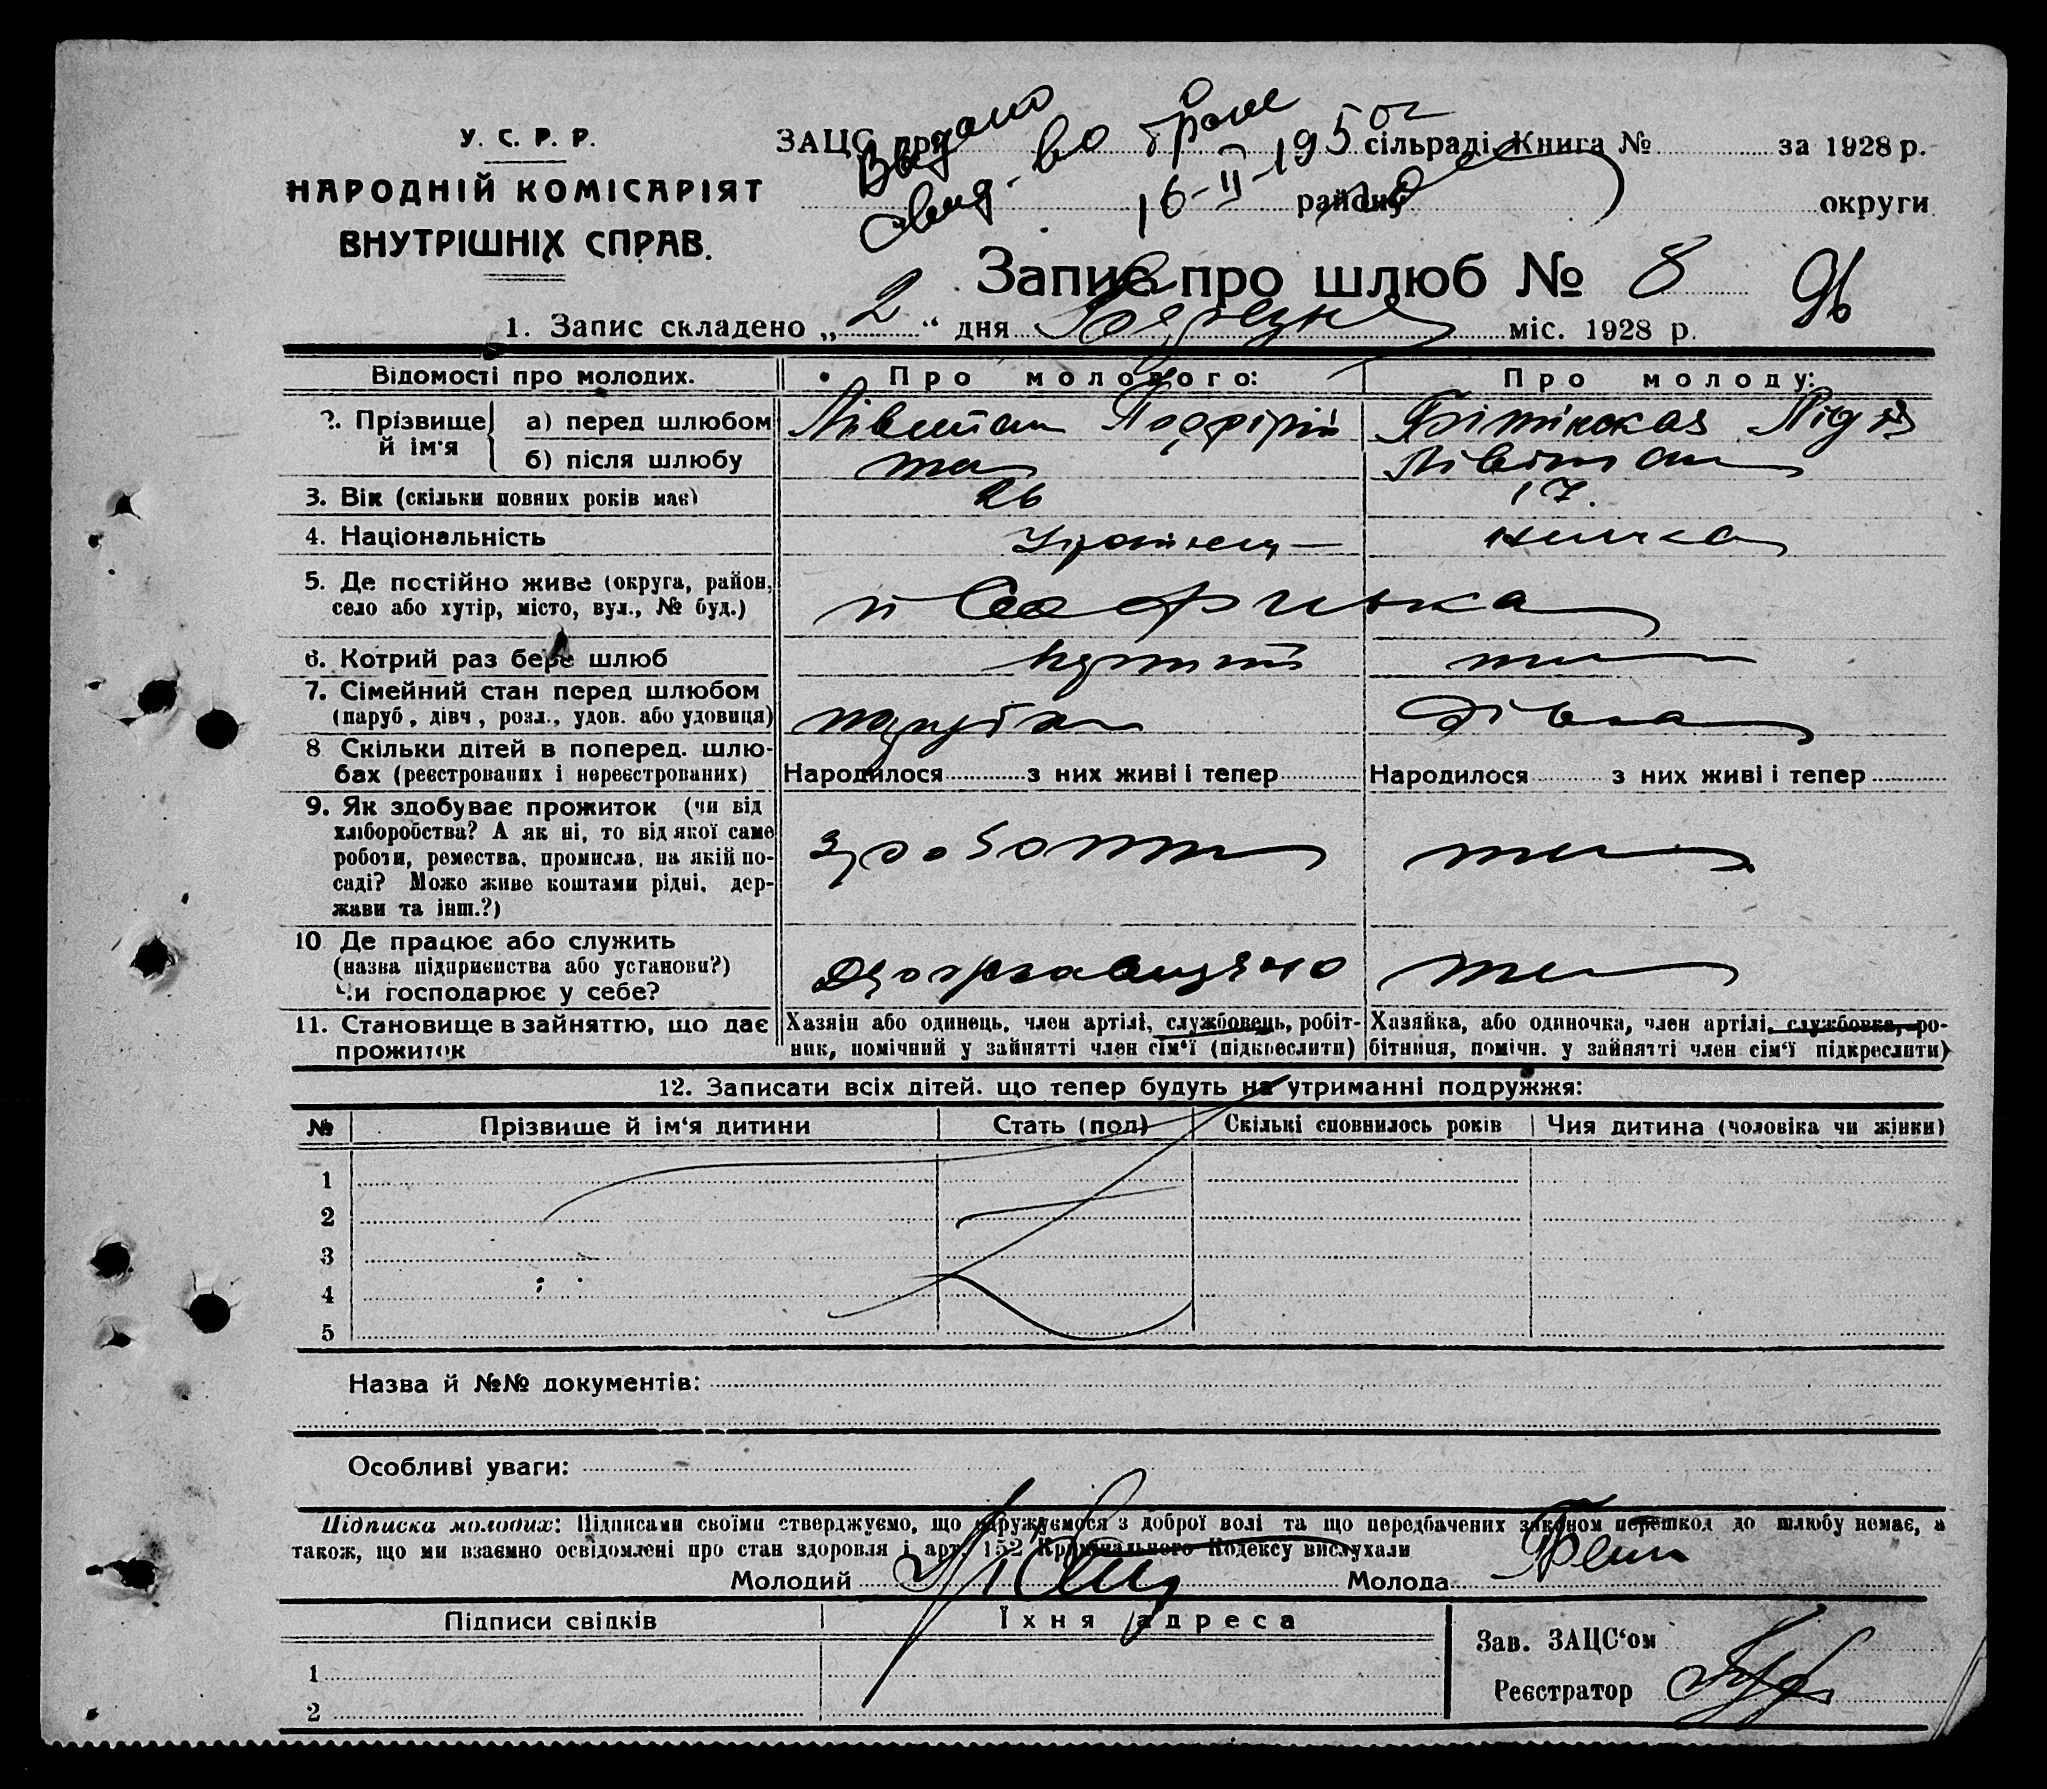 У. С. Р. Р.
НАРОДНІЙ КОМІСАРІЯТ
ВНУТРІШНІХ СПРАВ.
ЗАЦС при сільраді Книга № за 1928 р.
району округи
Выдано
свид-во о браке
16-II-1950 г
Запис про шлюб № 8
96
1. Запис складено „ 2 “ дня Березня міс. 1928 р.
Відомості про молодих. Про молодого: Про молоду:
2. Прізвище й ім'я а) перед шлюбом Порфірій Лідія
б) після шлюбу
3. Вік (скільки повних років має) 26 17.
4. Національність Українец німка
5. Де постійно живе (округа, район, село або хутір, місто, вул., № буд.)
6. Котрий раз бере шлюб перший
7. Сімейний стан перед шлюбом (паруб., дівч., розл., удов. або удовиця) парубок дівка
8 Скільки дітей в поперед. шлю-
бах (реєстрованих і нереєстрованих) Народилося з них живі і тепер Народилося з них живі і тепер
9. Як здобуває прожиток (чи від
хліборобства? А як ні, то від якої саме
роботи, ремества, промисла, на якій по-
саді? Може живе коштами рідні, дер-
жави та інш.?)
10 Де працює або служить
(назва підприємства або установи?)
Чи господарює у себе?
11. Становище в зайняттю, що дає прожиток
Хазяїн або одинець, член артілі, службовець, робіт-
ник, помічний у зайнятті член сім'ї (підкреслити)
Хазяйка, або одиночка, член артілі, службовка, ро-
бітниця, помічн. у зайнятті член сім'ї підкреслити)
12. Записати всіх дітей. що тепер будуть на утриманні подружжя:
№ Прізвище й ім'я дитини Стать (пол) Скількі сповнилось років Чия дитина (чоловіка чи жінки)
1
2
3
4
5
Назва й №№ документів:
Особливі уваги:
Підписка молодих: Підписами своїми стверджуємо, що одружуємося з доброї волі та що передбачених законом перешкод до шлюбу немає, а
також, що ми взаємно освідомлені про стан здоровля і арт. 152 Кримінального Кодексу вислухали
Молодий Молода
Підписи свідків Їхня адреса
Зав. ЗАЦС'ом
1
Реєстратор
2